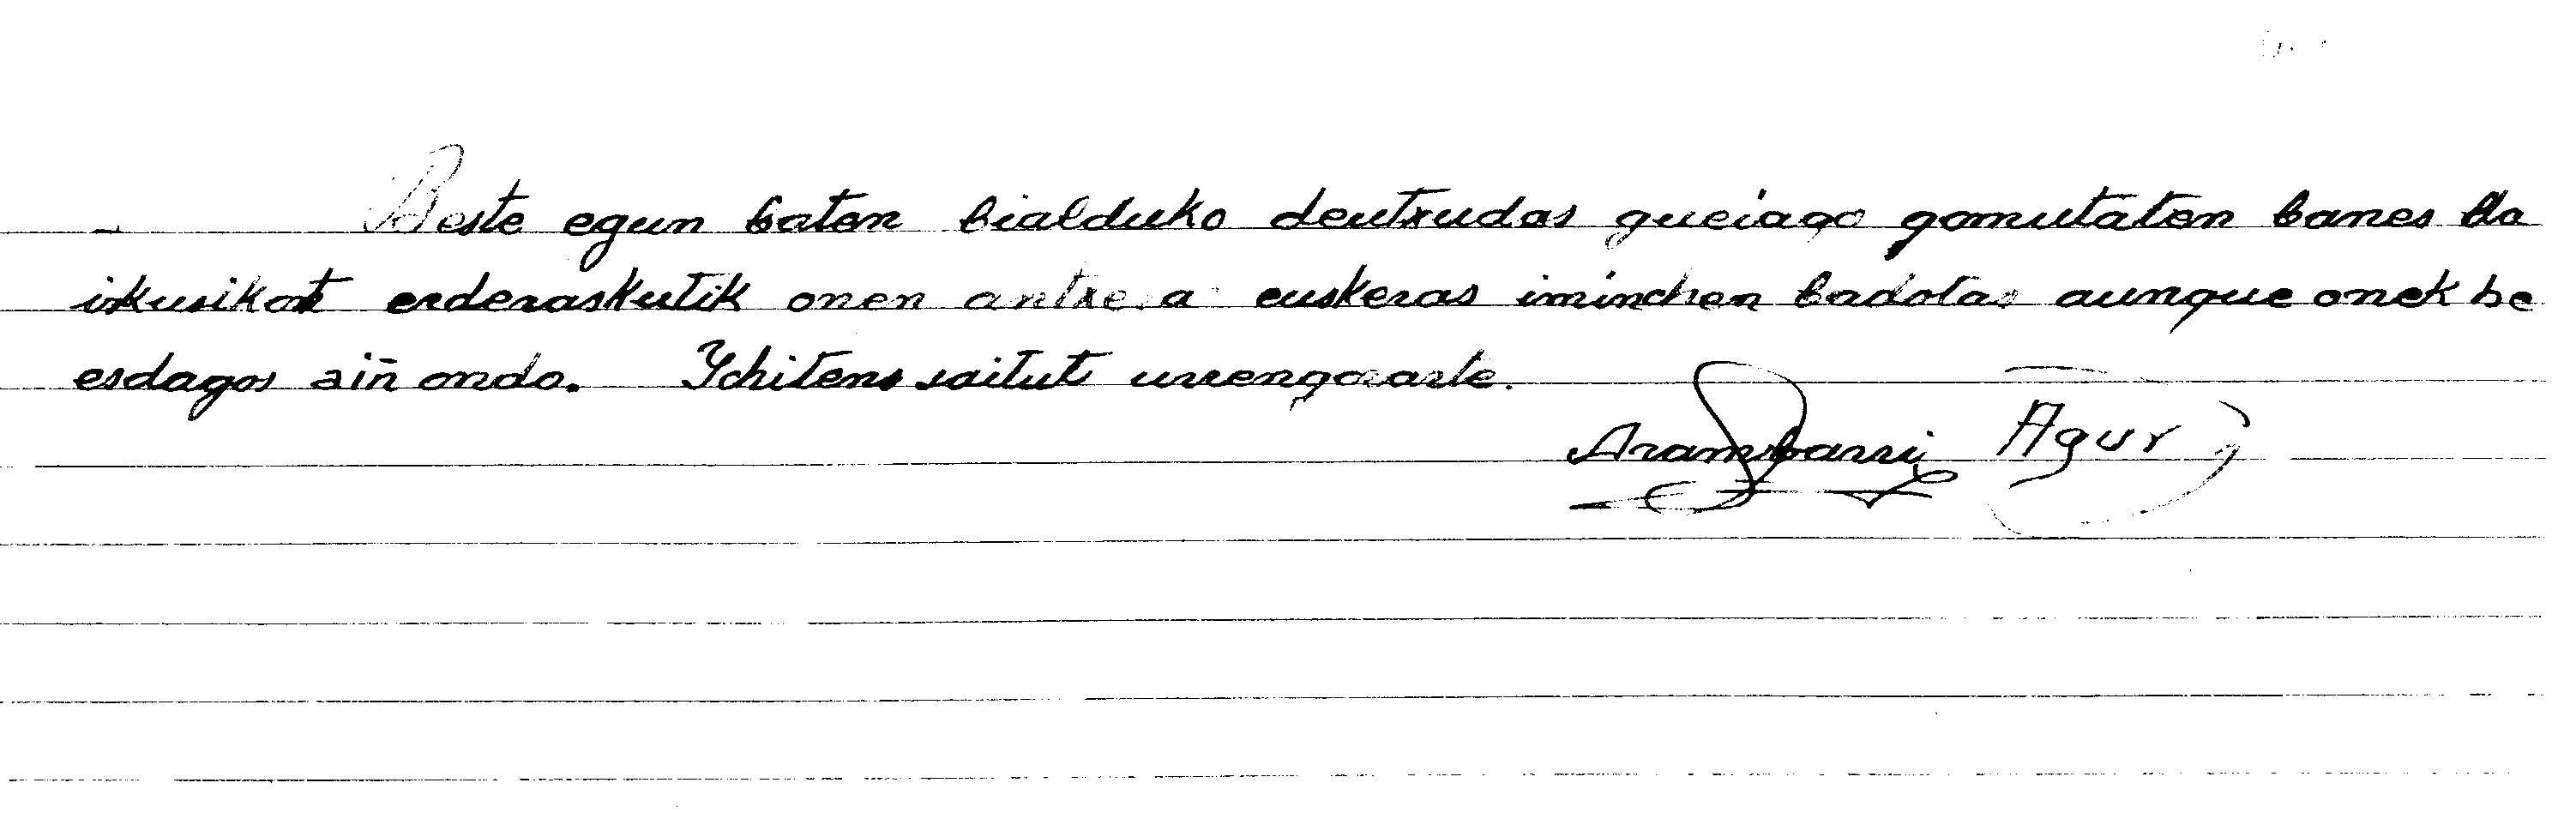 Beste egun baten bialduko deutxudas gueiago gomutaten banes da
ikusikot erderaskutik onen antxera euskeras iminchen badotas aunque onek be
esdagos aiñ ondo. Ychitens saitut urrengorarte.
Arambarri Agur